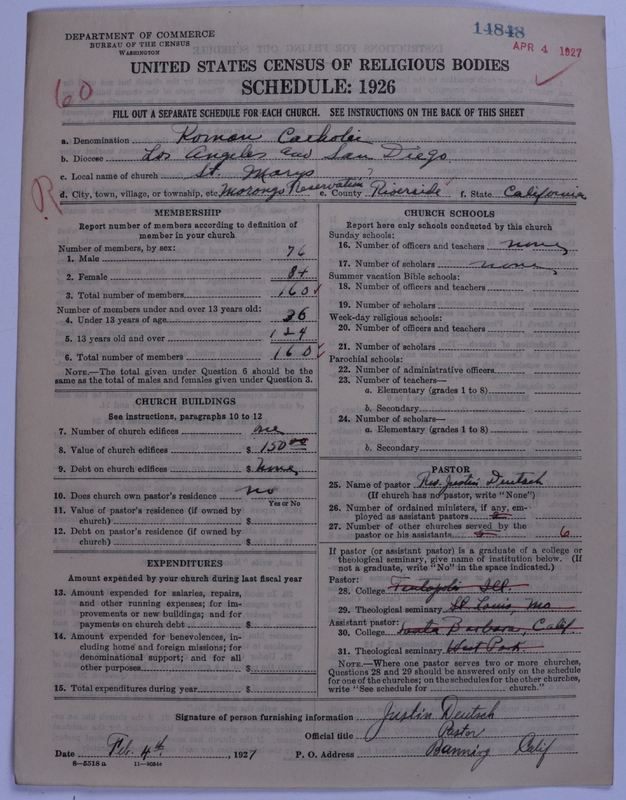 DEPARTMENT OF COMMERCE
BUREAU OF THE CENSUS
WASHINGTON
14848
APR 4 1927
UNITED STATES CENSUS OF RELIGIOUS BODIES
SCHEDULE: 1926
60
FILL OUT A SEPARATE SCHEDULE FOR EACH CHURCH. SEE INSTRUCTIONS ON THE BACK OF THIS SHEET
a. Denomination Roman Catholic
b. Diocese Los Angeles and San Diego
c. Local name of church St. Marys ?
R
d. City, town, village, or township, etc. Morongo Reservation e. County Riverside f. State California
MEMBERSHIP
Report number of members according to definition of
member in your church
Number of members, by sex:
1. Male 76
2. Female 84
3. Total number of members 160
Number of members under and over 13 years old:
4. Under 13 years of age 36
5. 13 years old and over 124
6. Total number of members 160
NOTE.—The total given under Question 6 should be
same as the total of males and females given under Question 3.
CHURCH BUILDINGS
See instructions, paragraphs 10 to 12
7. Number of church edifices one
8. Value of church edifices $ 150 00
9. Debt on church edifices $ None
10. Does church own pastor's residence no
Yes or No
11. Value of pastor's residence (if owned by
church) $
12. Debt on pastor's residence (if owned by
church) $
EXPENDITURES
Amount expended by your church during last fiscal year
13. Amount expended for salaries, repairs,
and other running expenses; for im-
provements or new buildings; and for
payments on church debt $
14. Amount expended for benevolences, in-
cluding home and foreign missions; for
denominational support; and for all
other purposes $
15. Total expenditures during year $
CHURCH SCHOOLS
Report here only schools conducted by this church
Sunday schools:
16. Number of officers and teachers none
17. Number of scholars none
Summer vacation Bible schools:
18. Number of officers and teachers
19. Number of scholars
Week-day religious schools:
20. Number of officers and teachers
21. Number of scholars
Parochial schools:
22. Number of administrative officers
23. Number of teachers—
a. Elementary (grades 1 to 8)
b. Secondary
24. Number of scholars—
a. Elementary (grades 1 to 8)
b. Secondary
PASTOR
25. Name of pastor Rev. Justin Deutsch
(If church has no pastor, write "None")
26. Number of ordained ministers, if any, em-
ployed as assistant pastors
27. Number of other churches served by the
pastor or his assistants 6
If pastor (or assistant pastor) is a graduate of a college or
theological seminary, give name of institution below. (If
not a graduate, write "No" in the space indicated.)
Pastor:
28. College Teutopolis Ill.
29. Theological seminary St. Louis, Mo
Assistant pastor:
30. College Santa Barbara, Calif.
31. Theological seminary West Park
NOTE.—Where one pastor serves two or more churches,
Questions 28 and 29 should be answered only on the schedule
for one of the churches; on the schedules for the other churches,
write "See schedule for church."
Signature of person furnishing information Justin Deutsch
Official title Pastor
Date Feb. 4th, 1927 P. O. Address Banning Calif
8—5318 a